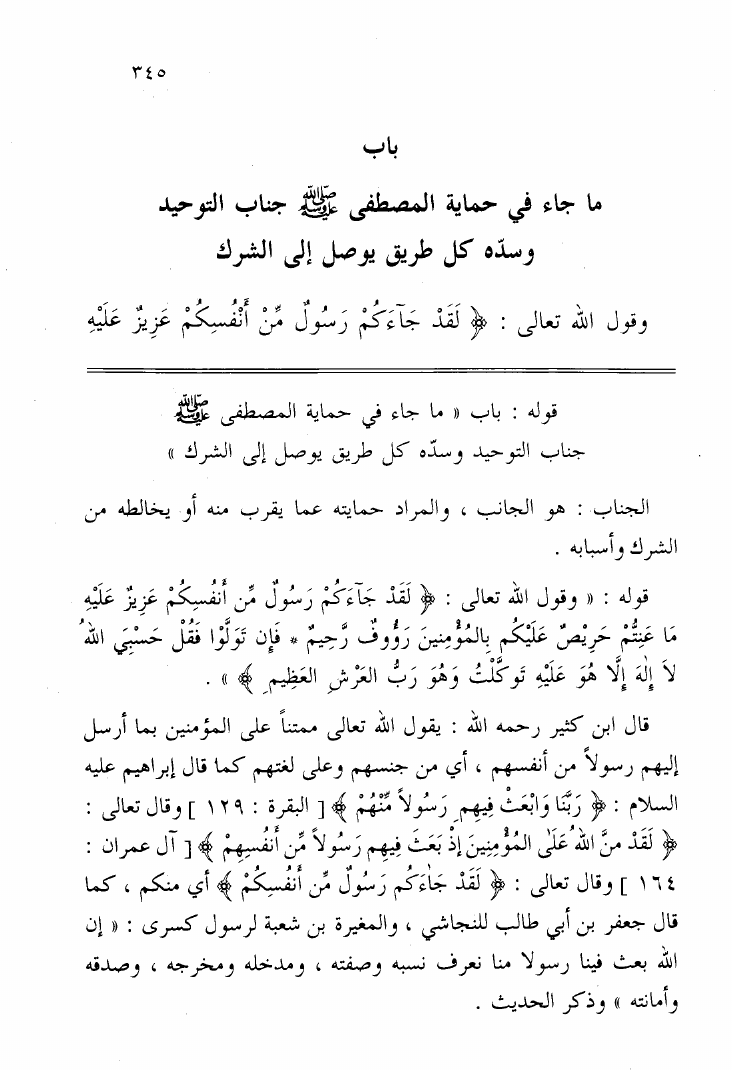 ٣٤٥
باب
ما جاء في حماية المصطفى ﷺ جناب التوحيد
وسدّه كل طريق يوصل إلى الشرك
وقول الله تعالى : ﴿ لَقَدْ جَآءَكُمْ رَسُولٌ مِّنْ أَنْفُسِكُمْ عَزِيزٌ عَلَيْهِ
قوله : باب « ما جاء في حماية المصطفى ﷺ
جناب التوحيد وسدّه كل طريق يوصل إلى الشرك »
الجناب : هو الجانب ، والمراد حمايته عما يقرب منه أو يخالطه من
الشرك وأسبابه .
قوله : « وقول الله تعالى : ﴿ لَقَدْ جَآءَكُمْ رَسُولٌ مِّن أَنفُسِكُمْ عَزِيزٌ عَلَيْهِ
مَا عَنِتُّمْ حَرِيْصٌ عَلَيْكُم بِالمُؤْمِنِينَ رَؤُوفٌ رَّحِيمٌ * فَإِن تَوَلَّوْا فَقُلْ حَسْبِيَ اللهُ
لاَ إِلٰهَ إِلَّا هُوَ عَلَيْهِ تَوكَّلْتُ وَهُوَ رَبُّ العَرْشِ العَظِيمِ ﴾ » .
قال ابن كثير رحمه الله : يقول الله تعالى ممتناً على المؤمنين بما أرسل
إليهم رسولاً من أنفسهم ، أي من جنسهم وعلى لغتهم كما قال إبراهيم عليه
السلام : ﴿ رَبَّنَا وَابْعَثْ فِيهِم رَسُولاً مِّنْهُمْ ﴾ [ البقرة : ١٢٩ ] وقال تعالى :
﴿ لَقَدْ منَّ اللهُ عَلَى المُؤْمِنِينَ إذْ بَعَثَ فِيهِم رَسُولاً مِّن أَنفُسِهِمْ ﴾ [ آل عمران :
١٦٤ ] وقال تعالى : ﴿ لَقَدْ جَاءَكُم رَسُولٌ مِّن أَنفُسِكُمْ ﴾ أي منكم ، كما
قال جعفر بن أبي طالب للنجاشي ، والمغيرة بن شعبة لرسول كسرى : « إن
الله بعث فينا رسولا منا نعرف نسبه وصفته ، ومدخله ومخرجه ، وصدقه
وأمانته » وذكر الحديث .